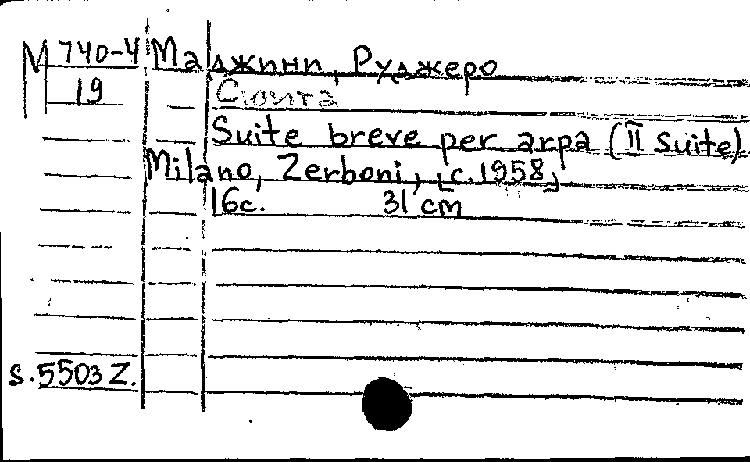 М 740-4 Маджини, Руджеро
19 Сюита
Suite breve per arpa (II Suite).
Milano, Zerboni, [c. 1958]
16с. 31 cm
S. 5503 Z.